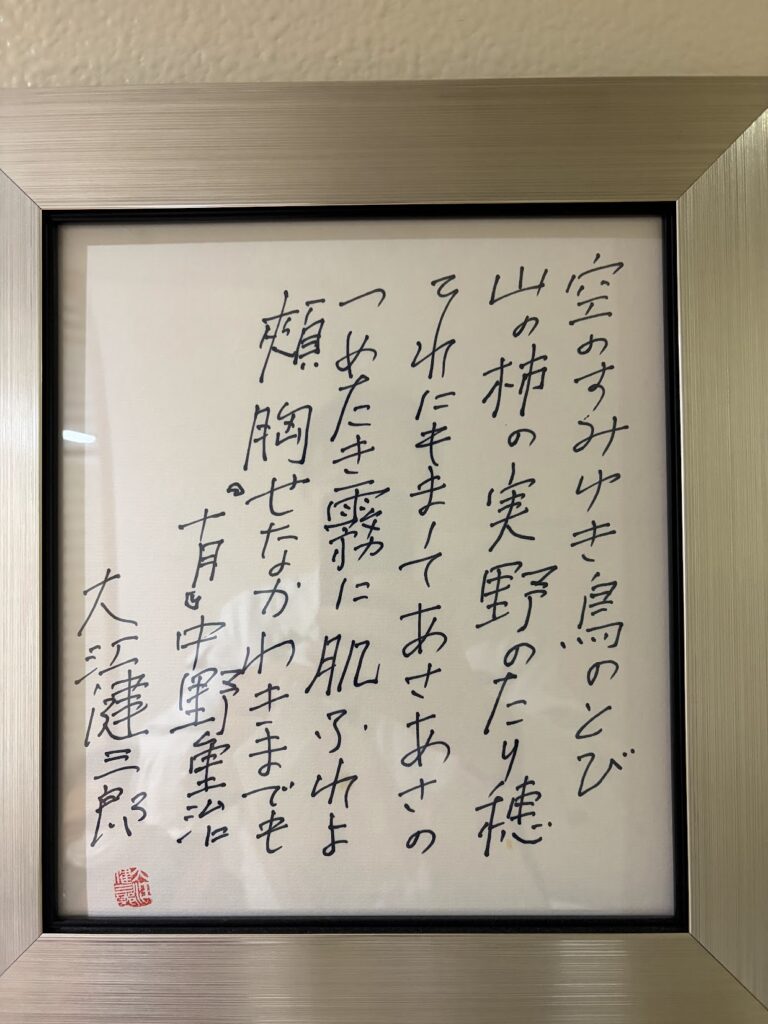 空のすみゆき鳥のとび
山の柿の実野のたり穂
それにもましてあさあさの
つめたき霧に肌ふれよ
頰胸せなかわきまでも
「十月」中野重治
大江健三郎
大江健三郎